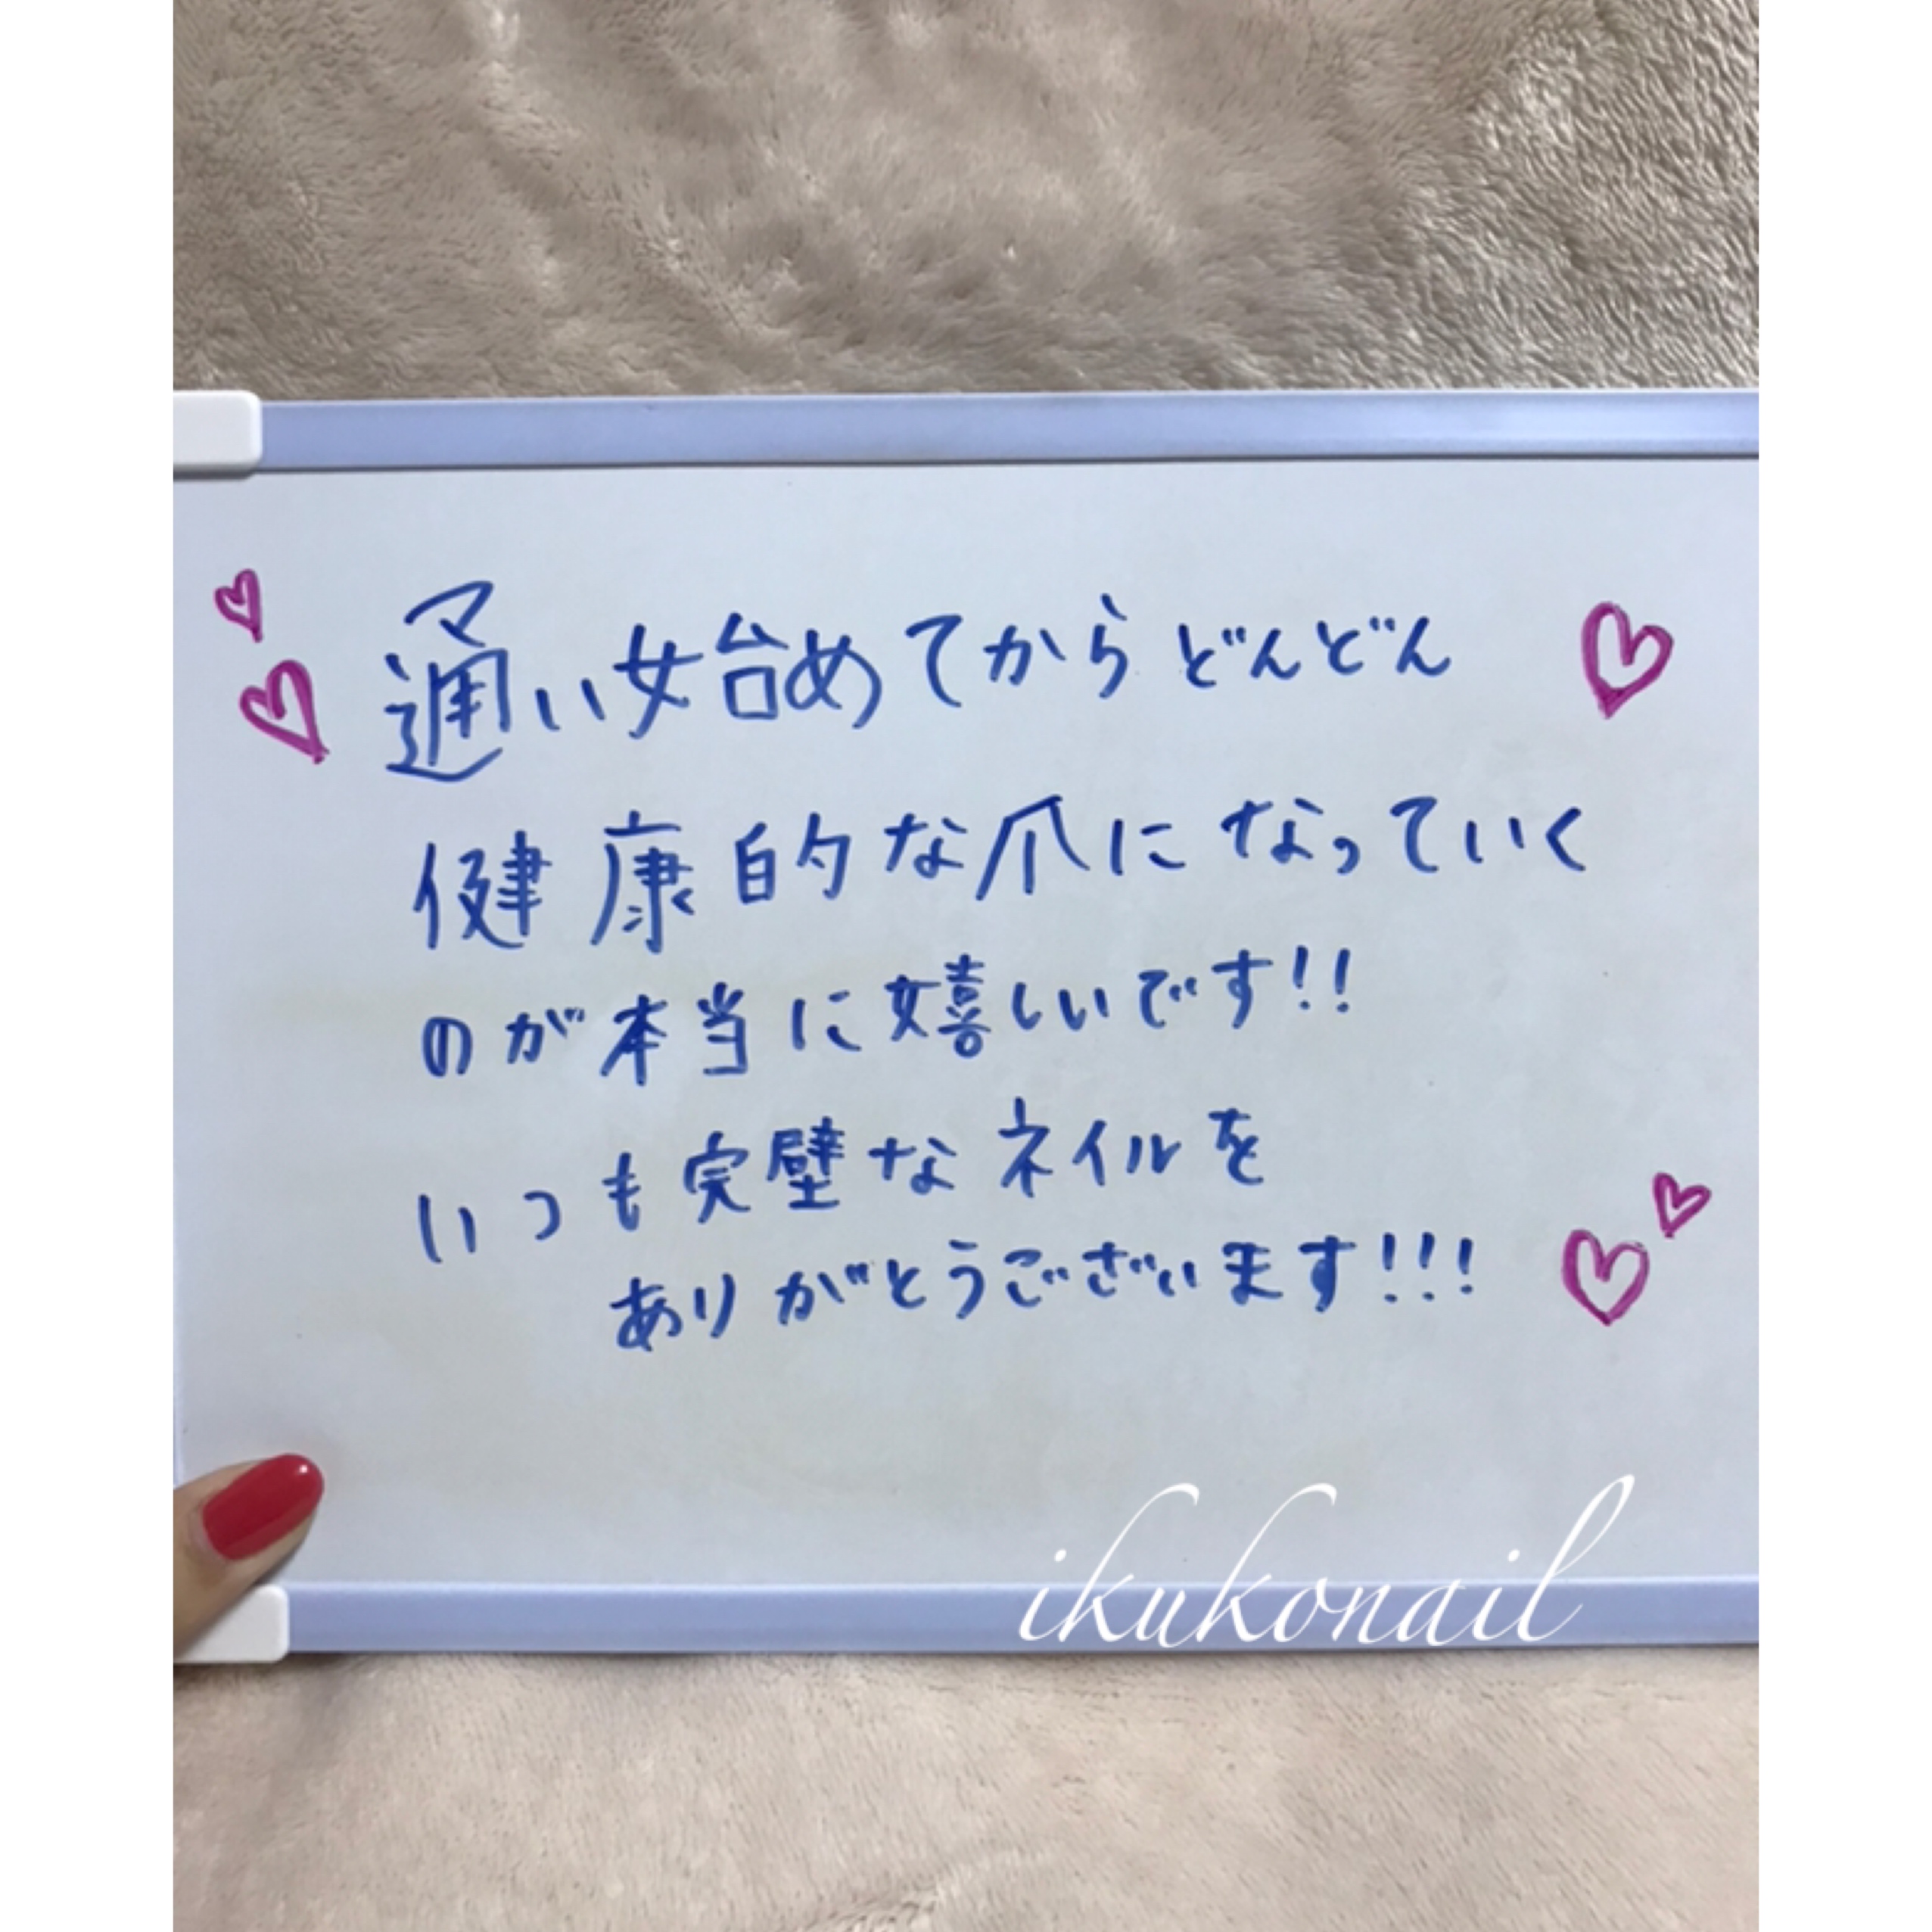 通い始めてからどんどん
健康的な爪になっていく
のが本当に嬉しいです!!
いつも完璧なネイルを
ありがとうございます!!!
ikukonail